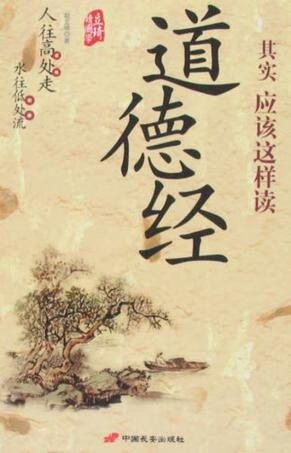 其实 应该这样读
道德经
人往高处走
水往低处流
中国长安出版社